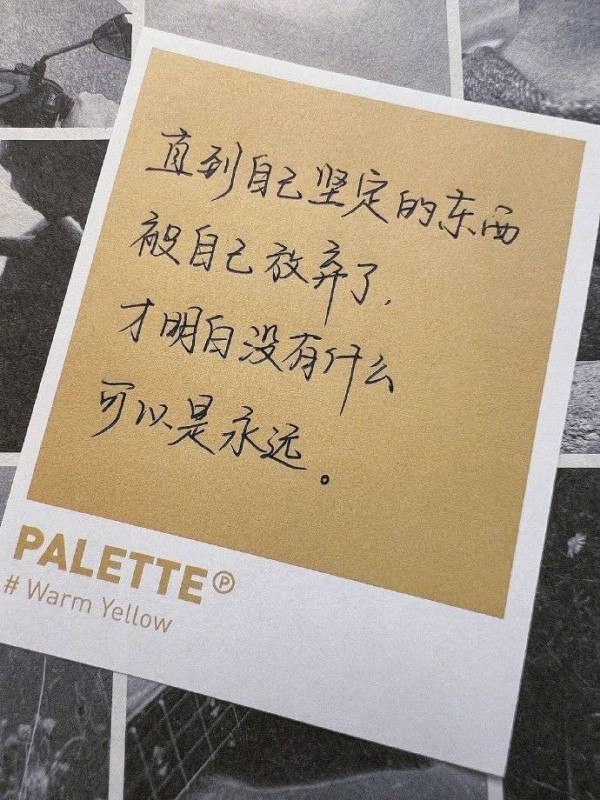 直到自己坚定的东西
被自己放弃了,
才明白没有什么
可以是永远。
PALETTE Ⓟ
# Warm Yellow